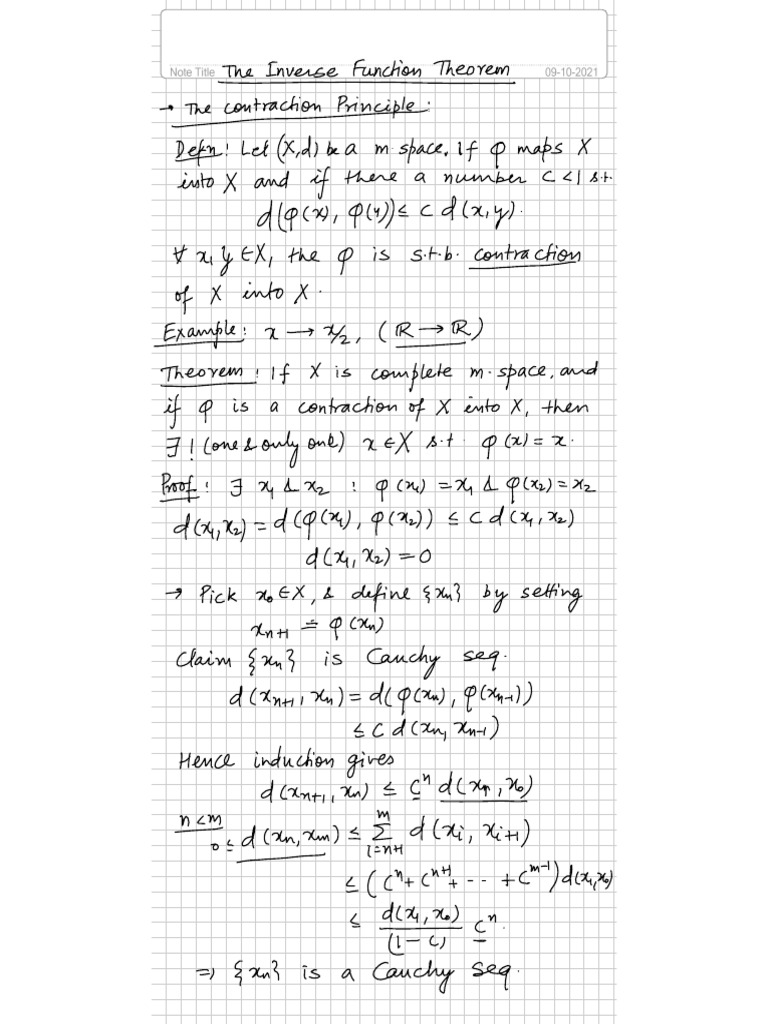 Note Title The Inverse Function Theorem 09-10-2021
→ The Contraction Principle:
Defn: Let (X,d) be a m·space. If φ maps X
into X and if there a number c<1 s.t.
d(φ(x), φ(y)) ≤ c d(x,y).
∀ x, y ∈ X, the φ is s.t.b. contraction
of X into X.
Example: x → x/2, (ℝ → ℝ)
Theorem: If X is complete m·space, and
if φ is a contraction of X into X, then
∃! (one & only one) x ∈ X s.t. φ(x) = x.
Proof: ∃ x₁ & x₂ : φ(x₁) = x₁ & φ(x₂) = x₂
d(x₁,x₂) = d(φ(x₁), φ(x₂)) ≤ c d(x₁,x₂)
d(x₁, x₂) = 0
→ Pick x₀ ∈ X, & define {xₙ} by setting
xₙ₊₁ ≐ φ(xₙ)
Claim {xₙ} is Cauchy seq.
d(xₙ₊₁, xₙ) = d(φ(xₙ), φ(xₙ₋₁))
≤ c d(xₙ, xₙ₋₁)
Hence induction gives
d(xₙ₊₁, xₙ) ≤ cⁿ d(x₁, x₀)
n<m
0 ≤ d(xₙ, xₘ) ≤ Σ_{i=n+1}^{m} d(xᵢ, xᵢ₊₁)
≤ (cⁿ + cⁿ⁺¹ + -- + cᵐ⁻¹) d(x₁,x₀)
≤ d(x₁, x₀)/(1-c) cⁿ.
⇒ {xₙ} is a Cauchy seq.